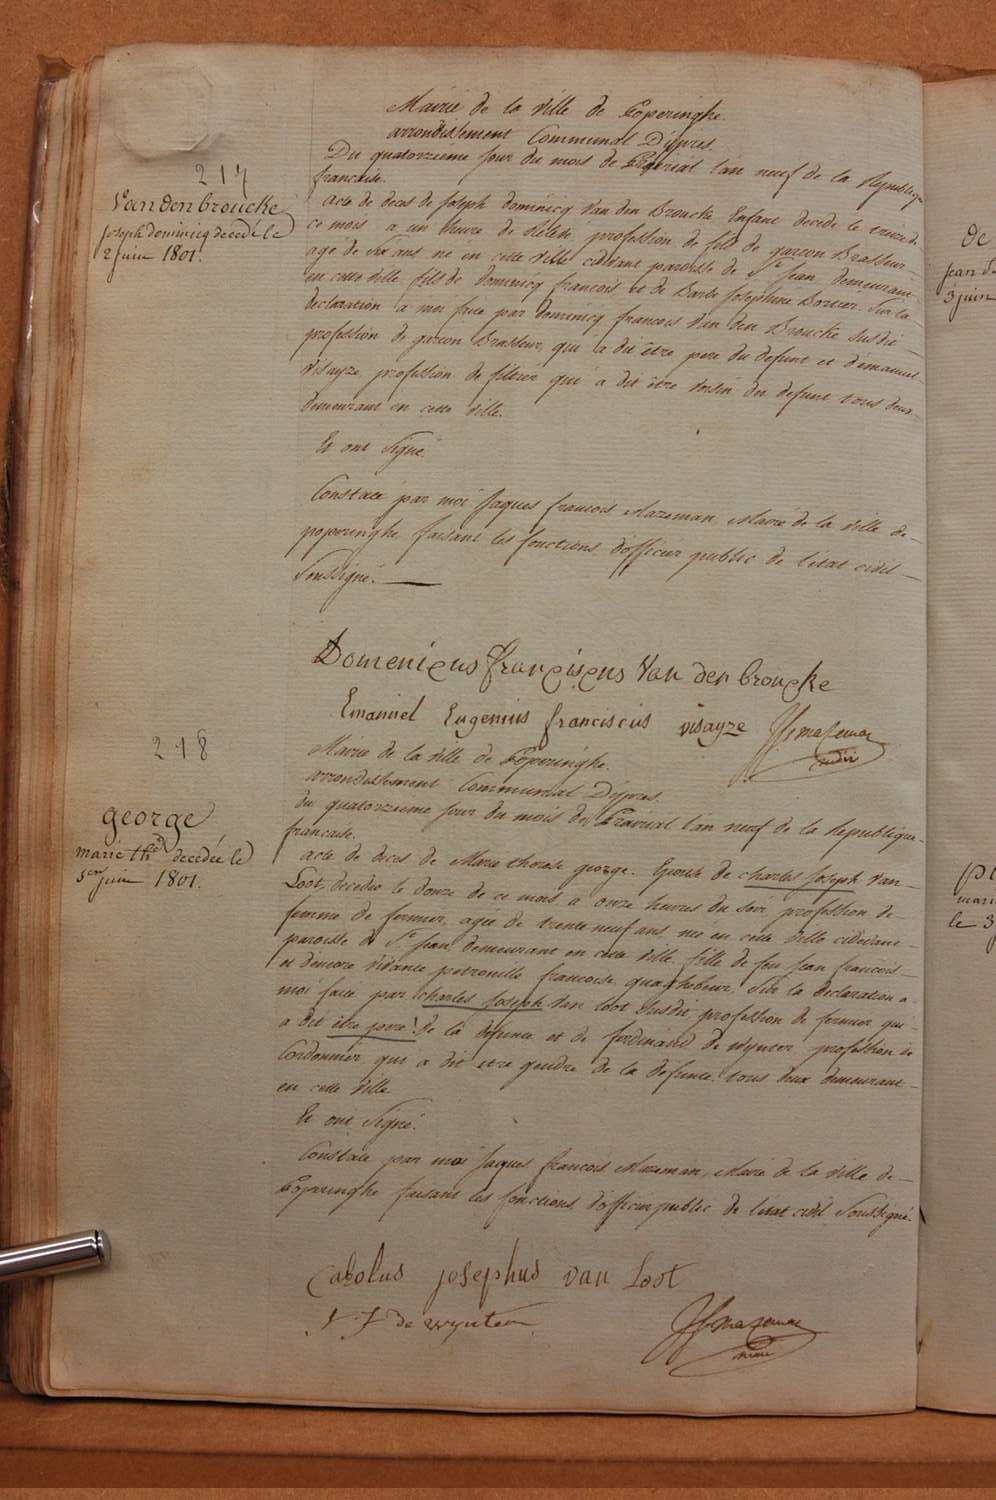 217
Vandenbroucke
joseph dominicq decedé le
2 juin 1801.
Mairie de la ville de Poperinghe
arrondissement Communal D'ypres.
Du quatorzieme jour du mois de Prairial l'an neuf de la Republique
francaise.
acte de deces de Joseph dominicq Van den Broucke Enfant decede le treize de
ce mois a un heure de profession de fils de garcon Brasseur
age de six ans né en cette ville cidevant paroisse de St Jean, demeurant
en cette ville fils de dominicq francois et de Barbe Josephine Sur la
declaration a moi faite par dominicq francois Van den Broucke susdit
profession de garcon Brasseur, qui a dit être pere du defunt et d'emanuel
Visayze profession de qui a dit être voisin du defunt tous deux
demeurant en cette ville.
Et ont signé.
Constaté par moi Jaques francois Mazeman Maire de la ville de
poperinghe faisant les fonctions d'officier public de l'état civil
soussigné.
Domenicus franciscus Van den broucke
Emanuel Eugenius franciscus visayze JfMazeman
218
george
marie thé decedée le
1er juin 1801.
Mairie de la ville de Poperinghe.
arrondissement Communal D'ypres.
du quatorzieme jour du mois de Prairial l'an neuf de la Republique
francaise.
acte de deces de Marie therese george. Epouse de charles Joseph Van
Loot, decedée le douze de ce mois a onze heures du soir, profession de
femme de fermier, agée de trente neuf ans, née en cette ville cidevant
paroisse de St Jean, demeurant en cette ville, fille de feu Jean francois
et d'encore vivante petronille francoise quaghebeur, Sur la declaration a
moi faite par charles Joseph Van Loot susdit, profession de fermier qui
a dit être pere de la defunte et de ferdinand de wynter profession de
Cordonnier qui a dit etre gendre de la defunte, tous deux demeurant
en cette ville
Et ont signé.
Constaté par moi Jaques francois Mazeman, Maire de la ville de
Poperinghe faisant les fonctions d'officier public de l'état civil soussigné.
Carolus josephus van Loot
f J de wynter
JfMazeman
maire
de
jean
3 juin
mari
le 3